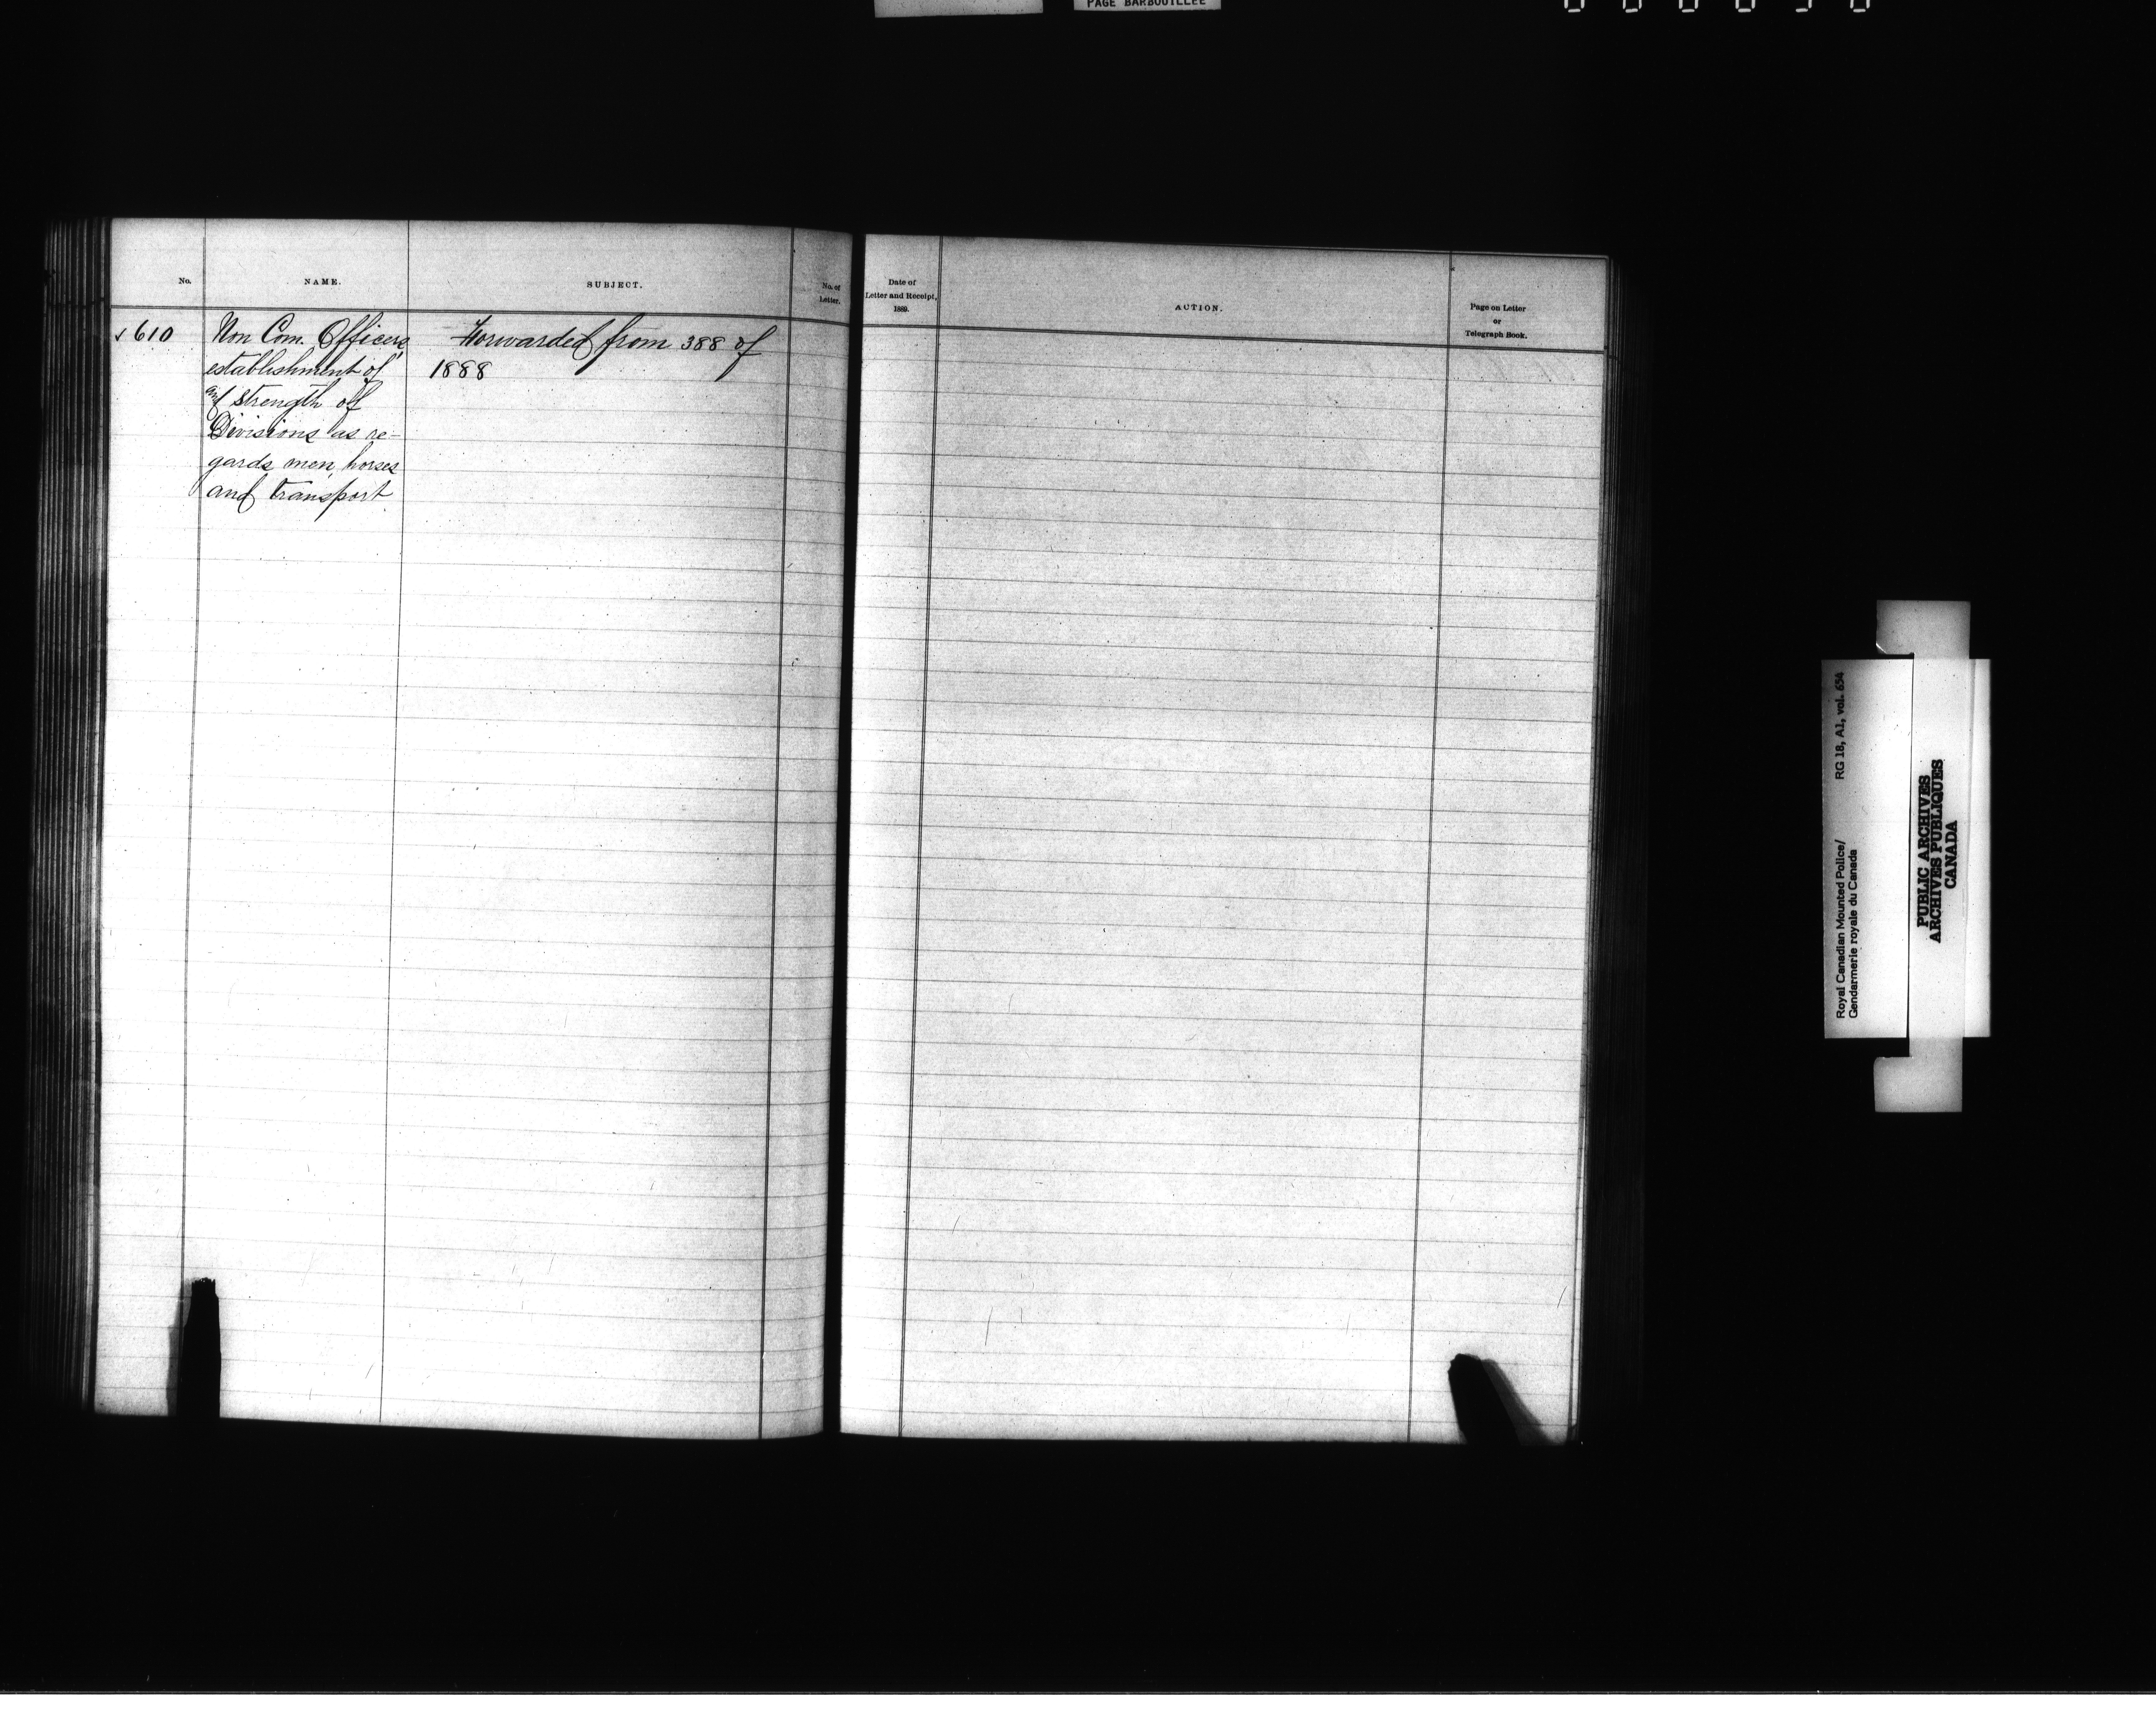 PAGE BARBOUILLEE
No.
NAME.
SUBJECT.
No. of
Letter.
Date of
Letter and Receipt,
1889.
ACTION.
Page on Letter
or
Telegraph Book.
610
Non Com. Officers,
establishment of
and strength of
Divisions as re-
gards men, horses
and transport
Forwarded from 388 of
1888
Royal Canadian Mounted Police/
Gendarmerie royale du Canada
RG 18, A1, vol. 634
PUBLIC ARCHIVES
ARCHIVES PUBLIQUES
CANADA